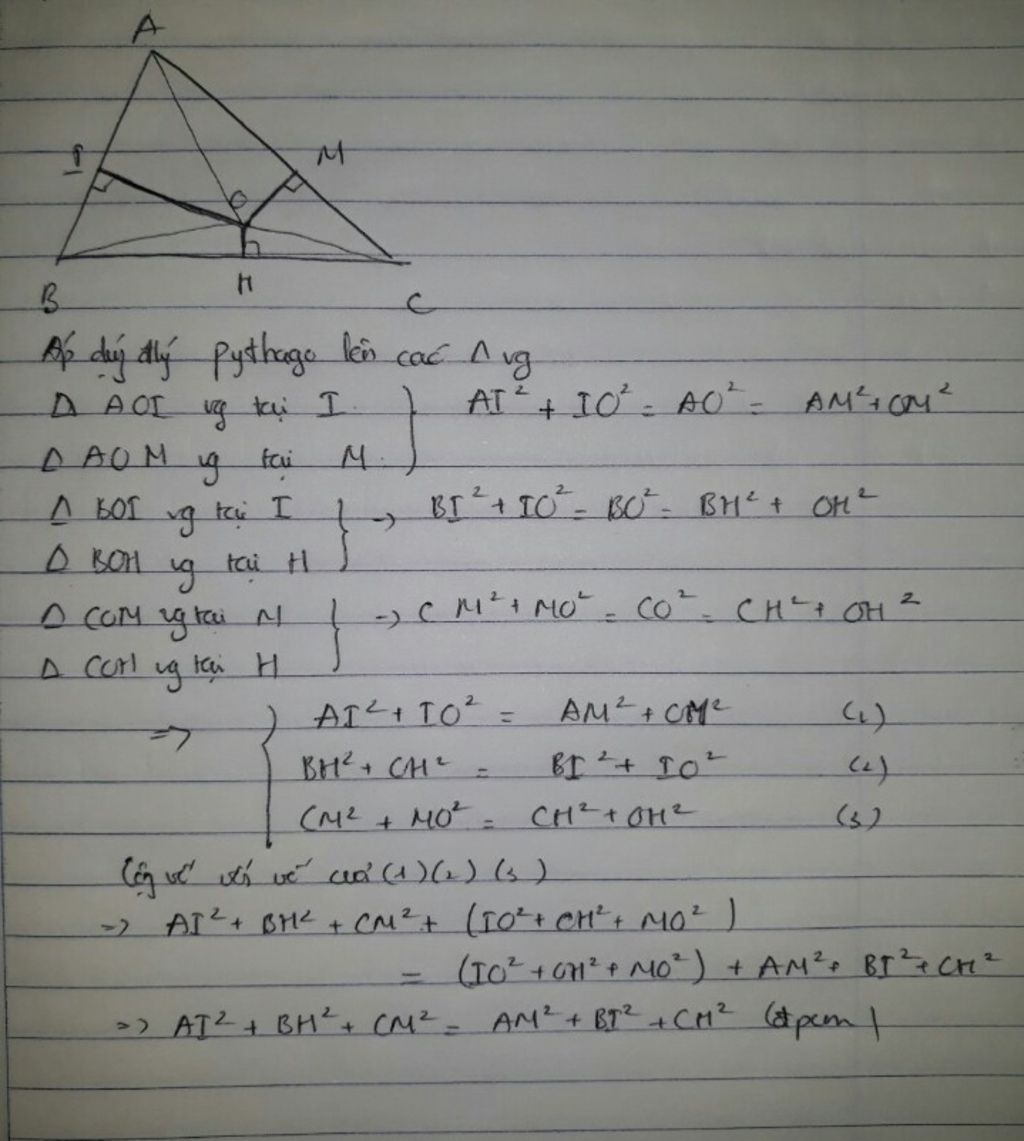 A
I
M
O
B
H
C
Áp dụng đlý pythago lên các Δ vg
Δ AOI vg tại I
AI² + IO² = AO² = AM² + OM²
Δ AOM vg tại M
Δ BOI vg tại I
→ BI² + IO² = BO² = BH² + OH²
Δ BOH vg tại H
Δ COM vg tại M
→ CM² + MO² = CO² = CH² + OH²
Δ COH vg tại H
⇒ AI² + IO² = AM² + OM² (1)
BH² + OH² = BI² + IO² (2)
CM² + MO² = CH² + OH² (3)
Cộng vế với vế của (1) (2) (3)
⇒ AI² + BH² + CM² + (IO² + OH² + MO²)
= (IO² + OH² + MO²) + AM² + BI² + CH²
⇒ AI² + BH² + CM² = AM² + BI² + CH² (đpcm)